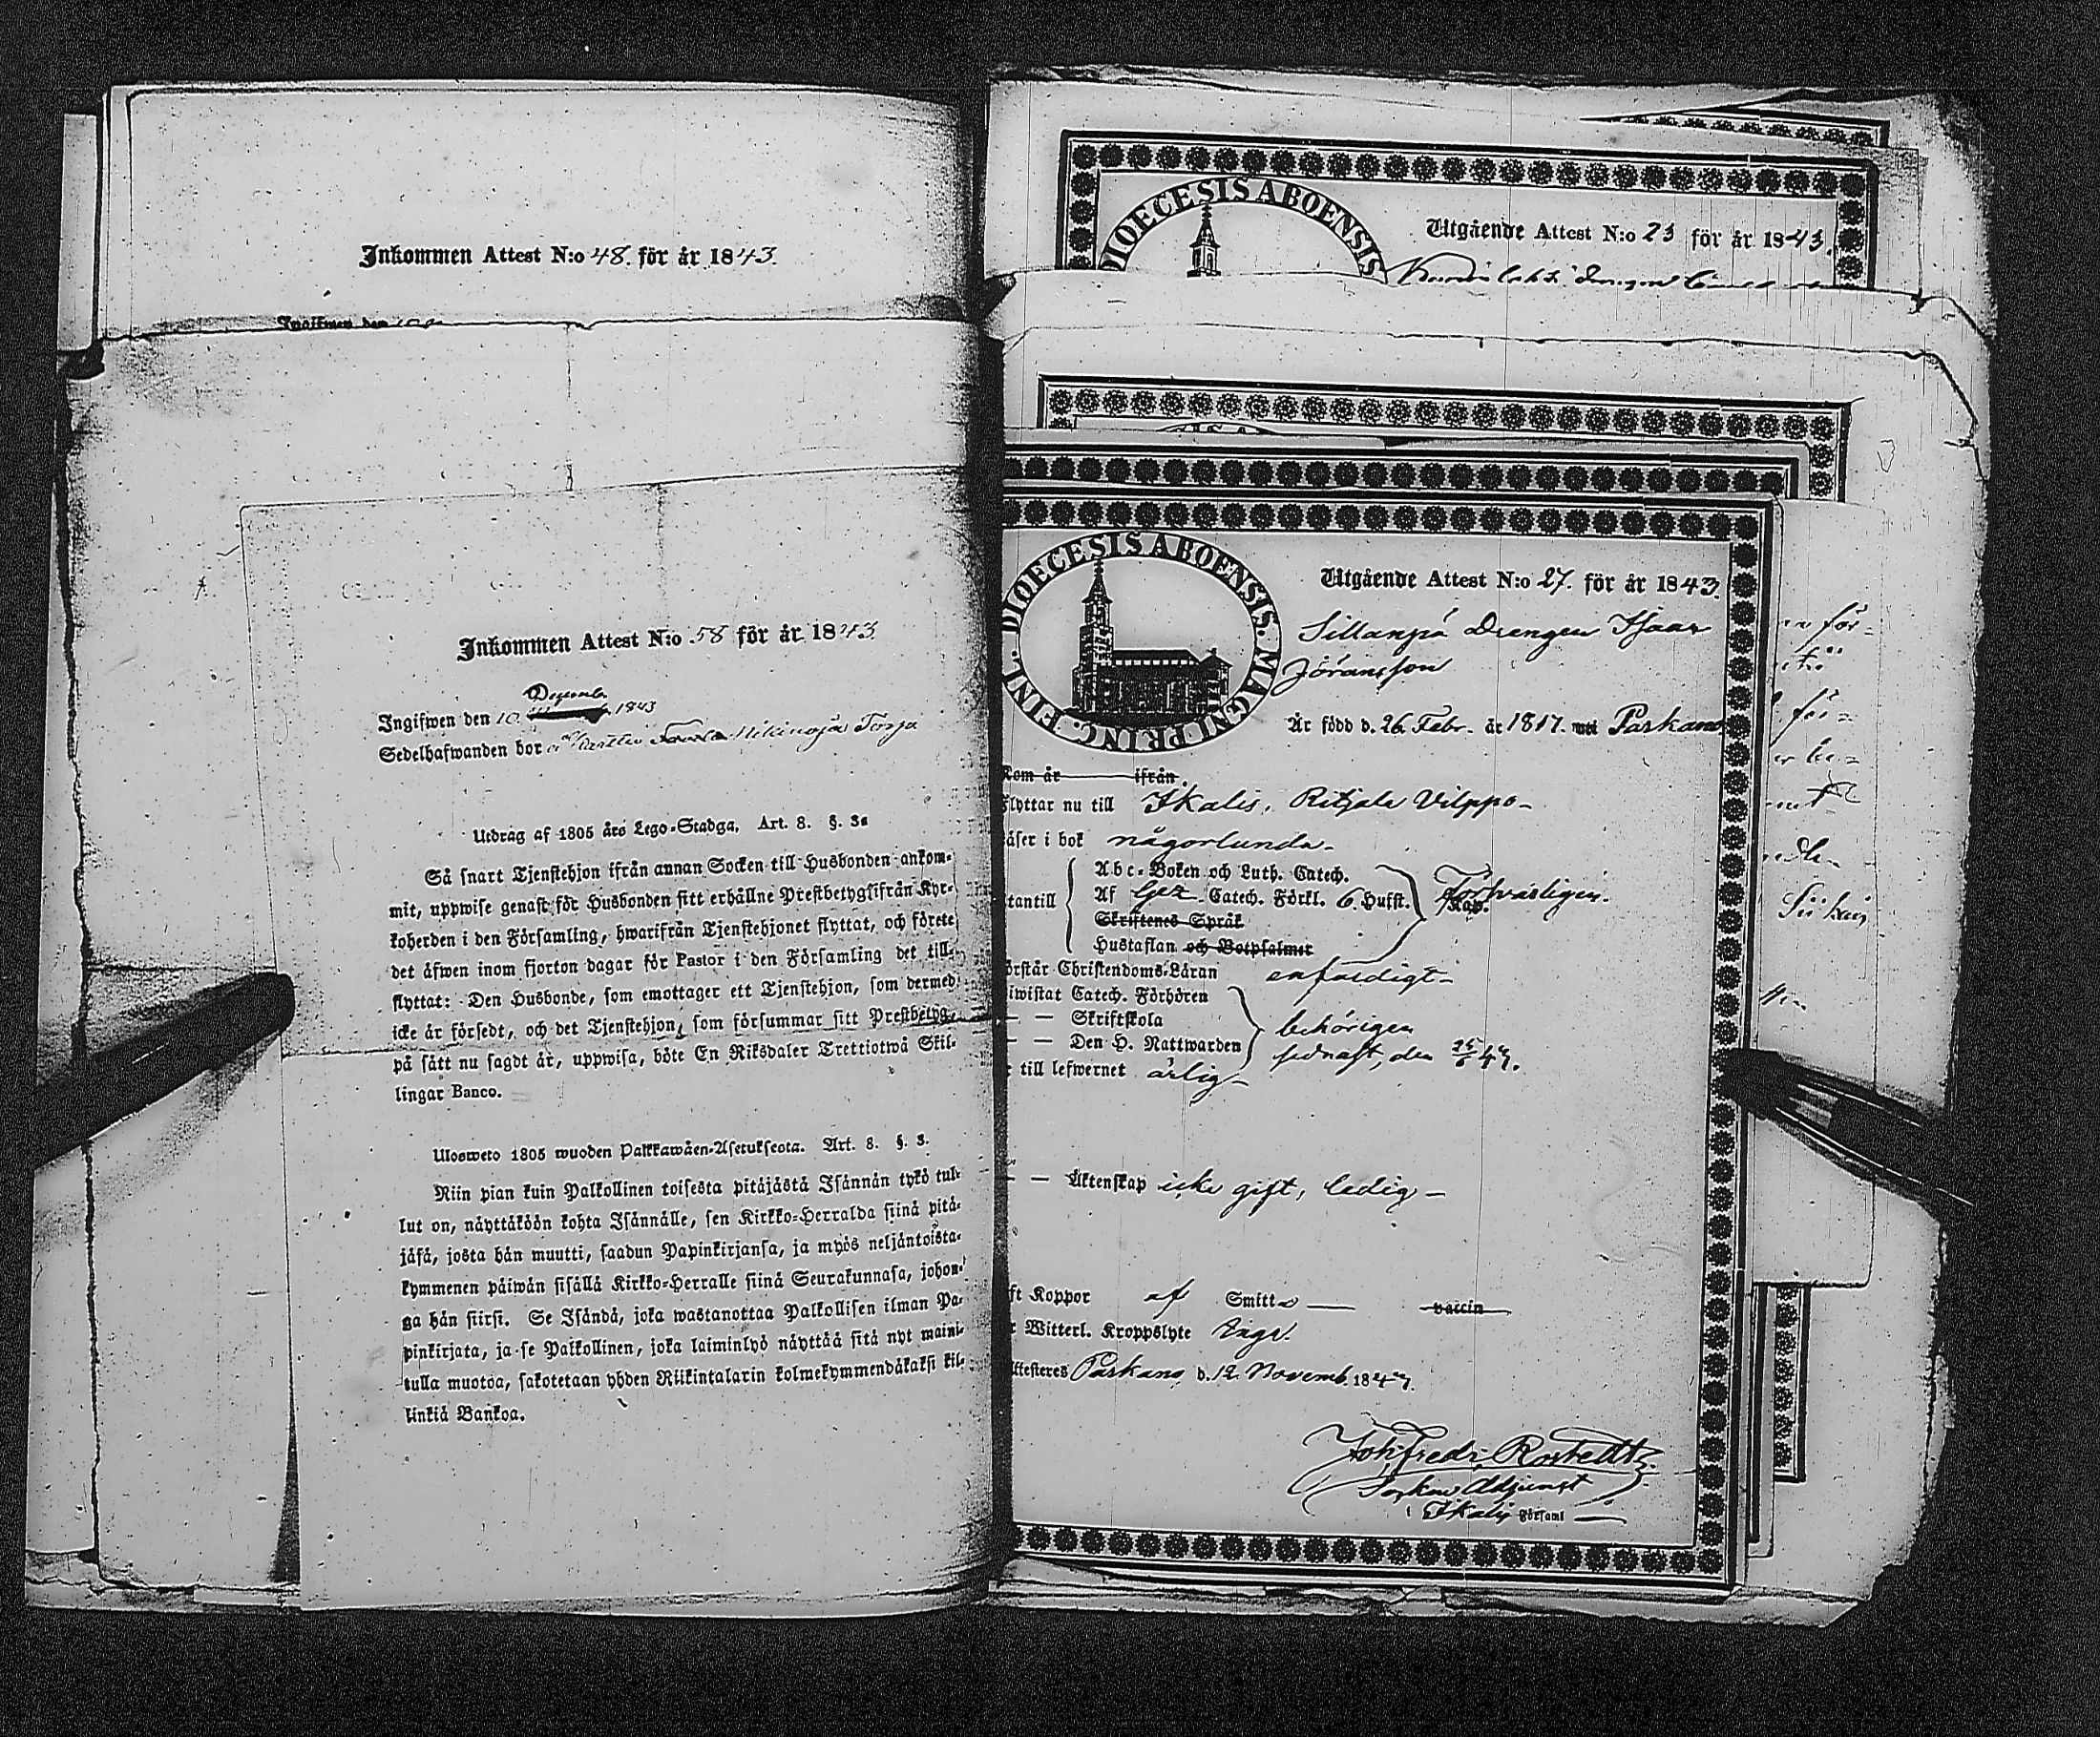 Inkommen Attest N:o 48. för år 1843.
Ingifwen den
Inkommen Attest N:o 58 för år 1843
Decemb.
Ingifwen den 10. 1843
Sedelhafwanden bor
Utdrag af 1805 års Lego-Stadga, Art. 8. §. 3.
Så snart Tjenstehjon ifrån annan Socken till Husbonden ankom-
mit, uppwise genast för Husbonden sitt erhållne Prestbetyg ifrån Kyr-
koherden i den Församling, hwarifrån Tjenstehjonet flyttat, och förete
det äfwen inom fjorton dagar för Pastor i den Församling det till-
flyttat: Den Husbonde, som emottager ett Tjenstehjon, som dermed
icke är försedt, och det Tjenstehjon, som försummar sitt Prestbetyg,
på sätt nu sagdt är, uppwisa, böte En Riksdaler Trettiotwå Skil-
lingar Banco.
Ulosweto 1805 wuoden Palkkawäen-Asetuksesta. Art. 8. §. 3.
Niin pian kuin Palkollinen toisesta pitäjästä Isännän tykö tul-
lut on, näyttäköön kohta Isännälle, sen Kirkko-Herralda siinä pitä-
jäsä, josta hän muutti, saadun Papinkirjansa, ja myös neljäntoista-
kymmenen päiwän sisällä Kirkko-Herralle siinä Seurakunnasa, johon-
ga hän siirsi. Se Isändä, joka wastanottaa Palkollisen ilman Pa-
pinkirjata, ja se Palkollinen, joka laiminlyö näyttää sitä nyt maini-
tulla muotoa, sakotetaan yhden Riikintalarin kolmekymmendäkaksi kil-
linkiä Bankoa.
DIOECESIS ABOENSIS
Utgående Attest N:o 23 för år 1843.
DIOECESIS ABOENSIS. MAGNI PRINC. FINL.
Utgående Attest N:o 27. för år 1843.
Sillanpä Drengen Isaac
Jöransson
Är född d. 26 Febr. år 1817. uti Parkano
Kom år ifrån
Flyttar nu till Ikalis, Ritjala Vilppo-
Läser i bok någorlunda-
Abc-Boken och Luth. Catech.
utantill Af Gez. Catech. Förkl. 6. Hufst. Kap. Försvarligen.
Skriftenes Språk
Hustaflan och Botpsalmer
örstår Christendoms-Läran enfaldigt-
iwistat Catech. Förhören
— — Skriftskola behörigen
— — Den H. Nattwarden sednast, den 25/6 43.
r till lefwernet ärlig-
— — Äktenskap icke gift, ledig -
ft Koppor af Smitta — vaccin
r Witterl. Kroppslyte inga.
Attesteres Parkano d. 12. Novemb. 1843.
Joh. Fredr. Rostedt
Sockne Adjunct
i Ikalis Församl